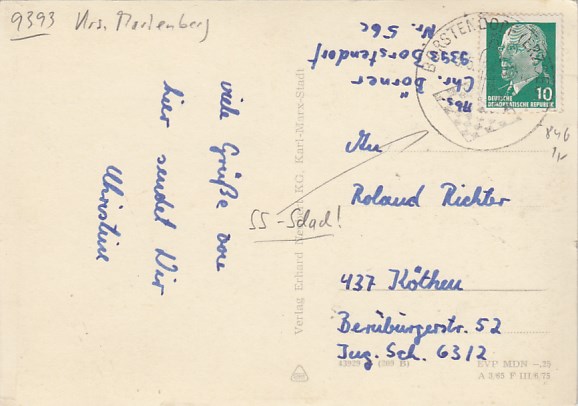 9393 Krs. Marienberg
viele Grüße von
hier sendet Dir
Christine
SS-Schach!
Verlag Erhard Neubert KG, Karl-Marx-Stadt
Abs.
Chr. Dörner
9393 Borstendorf
Nr. 56c
BORSTENDORF (ERZGEB
10
DEUTSCHE
DEMOKRATISCHE REPUBLIK
An
Roland Richter
437 Köthen
Bernburgerstr. 52
Ing. Sch. 63/2
EVP MDN -.25
A 2/65 F III/6/75